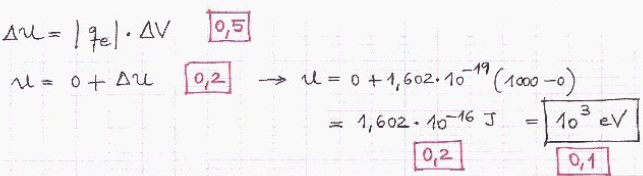 ΔU = |qₑ| · ΔV 0,5
U = 0 + ΔU 0,2 → U = 0 + 1,602·10⁻¹⁹ (1000 – 0)
= 1,602·10⁻¹⁶ J = 10³ eV
0,2 0,1